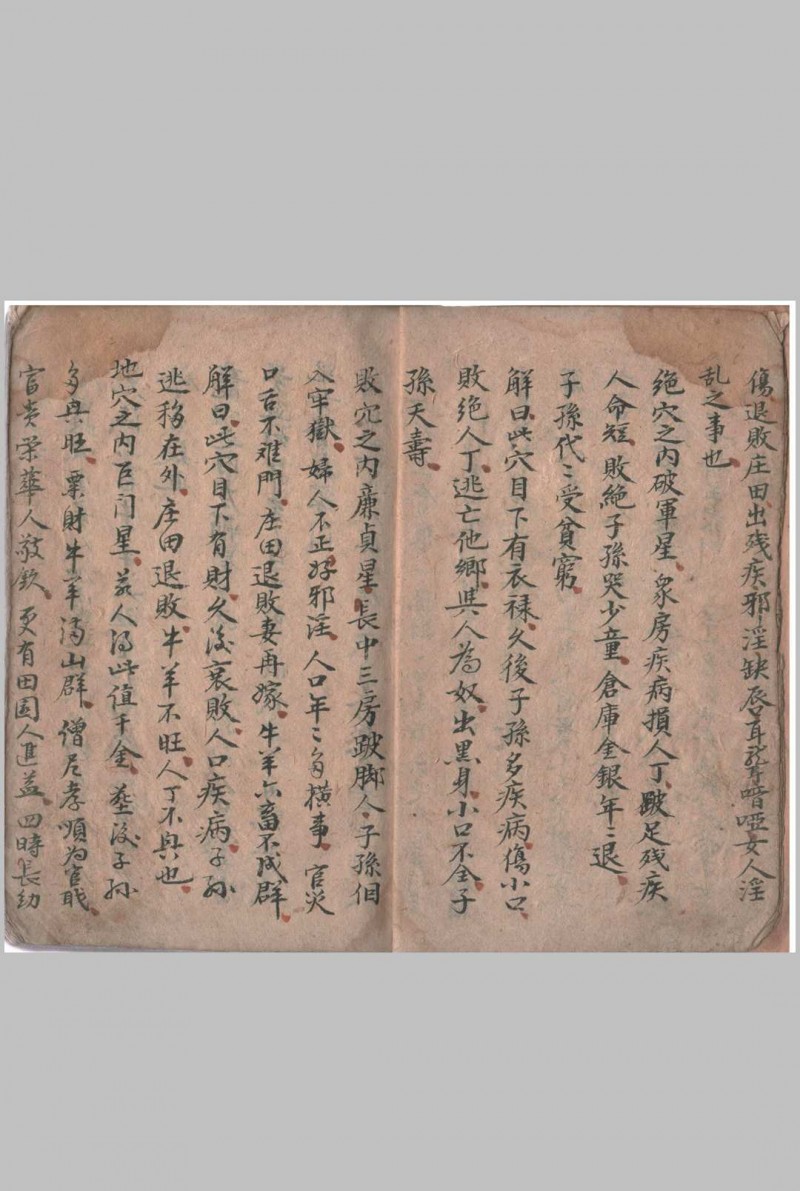 傷退敗庄田出残疾邪淫缺唇耳聾喑啞女人淫
乱之事也
絕穴之内破軍星衆房疾病損人丁跛足残疾
人命短敗絕子孫哭少童倉庫金銀年〻退
子孫代〻受貧窮
解曰此穴目下有衣禄久後子孫多疾病傷小口
敗绝人丁逃亡他鄉與人為奴出黑身小口不全子
孫夭壽
敗穴之内廉貞星長中三房跛脚人子孫徊
入牢獄婦人不正好邪淫人口年〻多横事官災
口舌不难門庄田退敗妻再嫁牛羊六畜不成群
解曰此穴目下有財久後衰敗人口疾病子孫
逃移在外庄田退敗牛羊不旺人丁不興也
地穴之内巨门星若人得此值千金塟後子孫
多興旺粟財牛羊满山群僧尼孝順为官职
富贵荣華人敬欽更有田园人進益四時長幼